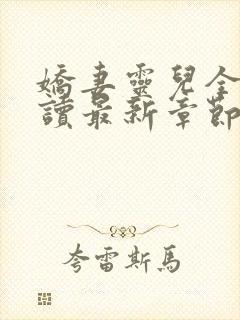 嬌妻靈兒全
讀最新章節
夸雷斯馬